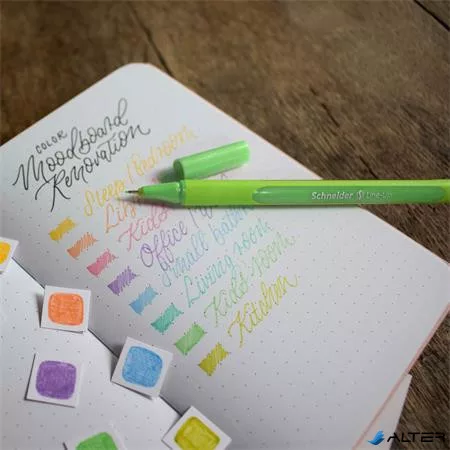 COLOR
Moodboard
Renovation
Sleep / bedroom
Kids
Office /
Small
Living room
Kid's room
Kitchen
Schneider Line-Up
ALTER